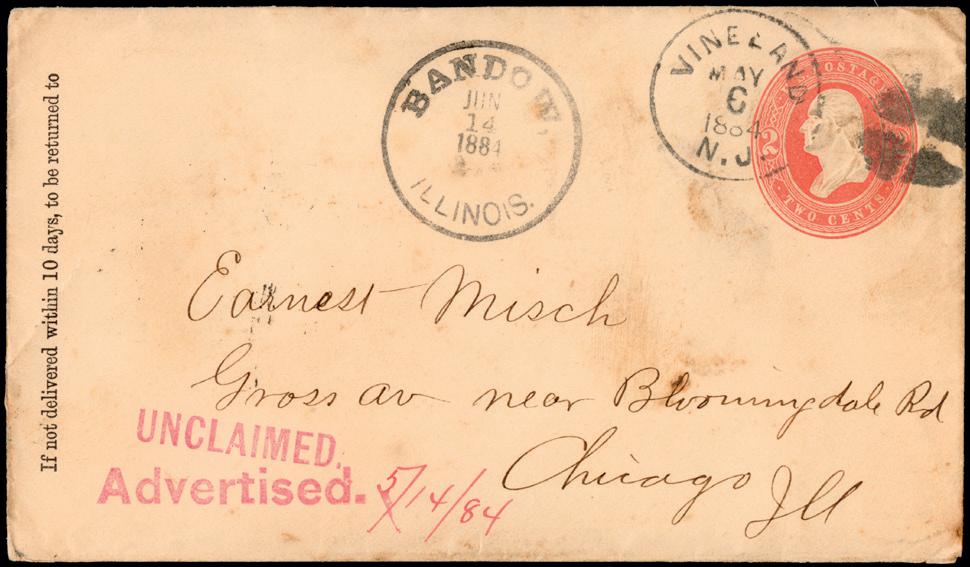 If not delivered within 10 days, to be returned to
BANDOW,
JUN
14
1884
ILLINOIS.
VINELAND
MAY
6
1884
N.J.
U.S. POSTAGE
2 2
TWO CENTS
Earnest Misch
Gross av near Bloomingdale Rd
Chicago
Ill
UNCLAIMED.
Advertised. 5/14/84